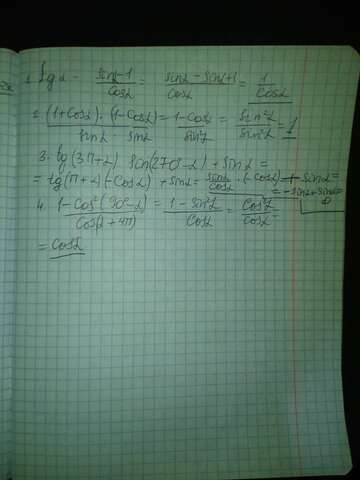 1. tg α - (sin α - 1)/cos α = (sin α - sin α + 1)/cos α = 1/cos α
2. ((1+cos α) · (1-cos α))/(sin α · sin α) = (1-cos α)/sin² α = sin² α/sin² α = 1
3. tg (3π+α) sin(270°-α) + sin α =
= tg(π+α)(-cos α) + sin α = sin α/cos α · (-cos α) + sin α = = -sin α + sin α = 0
4. (1-cos² (90°-α))/cos(α+4π) = (1-sin² α)/cos α = cos² α/cos α =
= cos α